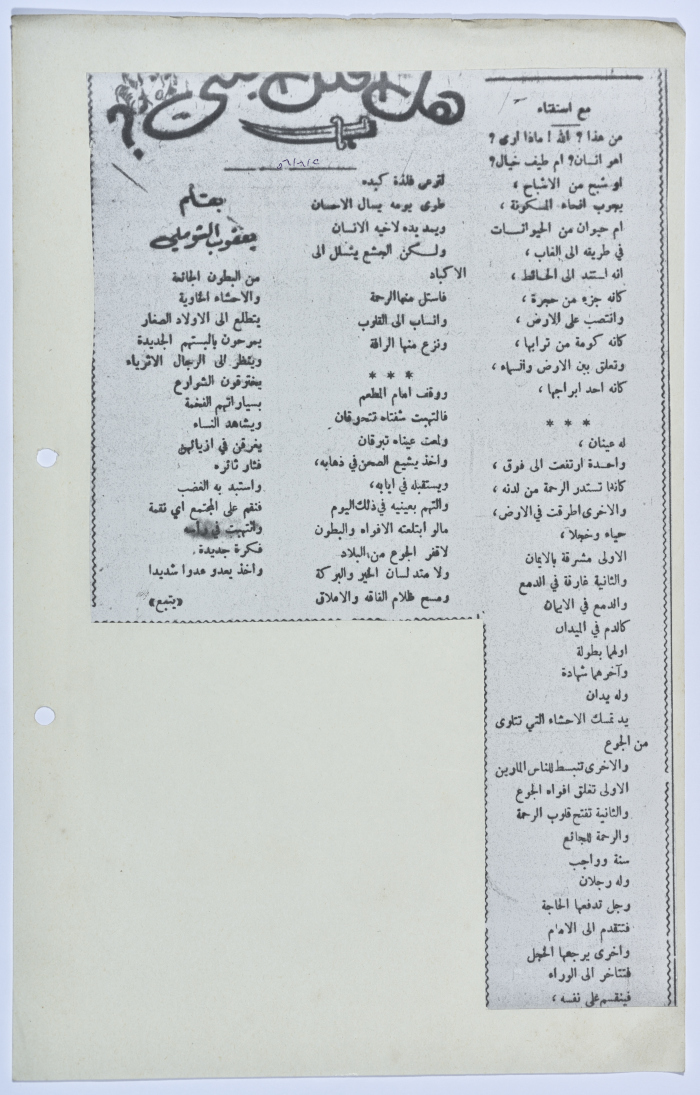 مع اسفناه
من هذا ? الله ! ماذا ارى ?
اهو انسان? ام طيف خيال?
او شبح من الاشباح ،
يجوب انحاء المسكونة ،
ام حيوان من الحيوانات
في طريقه الى الغاب ،
انه استند الى الحائط ،
كانه جزء من حجرة ،
وانتصب على الارض ،
كانه كومة من ترابها ،
وتعلق بين الارض والسماء ،
كانه احد ابراجها ،
* * *
له عينان ،
واحدة ارتفعت الى فوق ،
كانها تستدر الرحمة من لدنه ،
والاخرى اطرقت في الارض،
حياء وخجلا ،
الاولى مشرقة بالايمان
والثانية غارقة في الدمع
والدمع في الايمان
كالدم في الميدان
اولهما بطولة
وآخرهما شهادة
وله يدان
يد تمسك الاحشاء التي تتلوى
من الجوع
والاخرى تنبسط للناس المارين
الاولى تغلق افواه الجوع
والثانية تفتح قلوب الرحمة
والرحمة للجائع
سنة وواجب
وله رجلان
رجل تدفعها الحاجة
فتتقدم الى الامام
واخرى يرجعها الخجل
فتتاخر الى الوراء
فينقسم على نفسه ،
هل
؟
بقلم
يعقوب الشويلي
فلذة كبده
طوى يومه يسال الاحسان
ويمد يده لاخيه الانسان
ولكن الجشع يتسلل الى
الاكباد
فاستل منها الرحمة
وانساب الى القلوب
ونزع منها الرافة
* * *
ووقف امام المطعم
فالتهبت شفتاه تتحرقان
ولمعت عيناه تبرقان
واخذ يشيع الصحن في ذهابه،
ويستقبله في ايابه،
والتهم بعينيه في ذلك اليوم
مالو ابتلعته الافواه والبطون
لاقفر الجوع من البلاد
ولامتد لسان الخير والبركة
ومسح ظلام الفاقه والاملاق
من البطون الجائعة
والاحشاء الخاوية
يتطلع الى الاولاد الصغار
يمرحون بالبستهم الجديدة
وينظر الى الرجال الاثرياء
يخترقون الشوارع
بسياراتهم الفخمة
ويشاهد النساء
يغرقن في ازيائهن
فثار ثائره
واستبد به الغضب
فنقم على المجتمع اي نقمة
والتهبت في رأسه
فكرة جديدة .
واخذ يعدو عدوا شديدا
«يتبع»